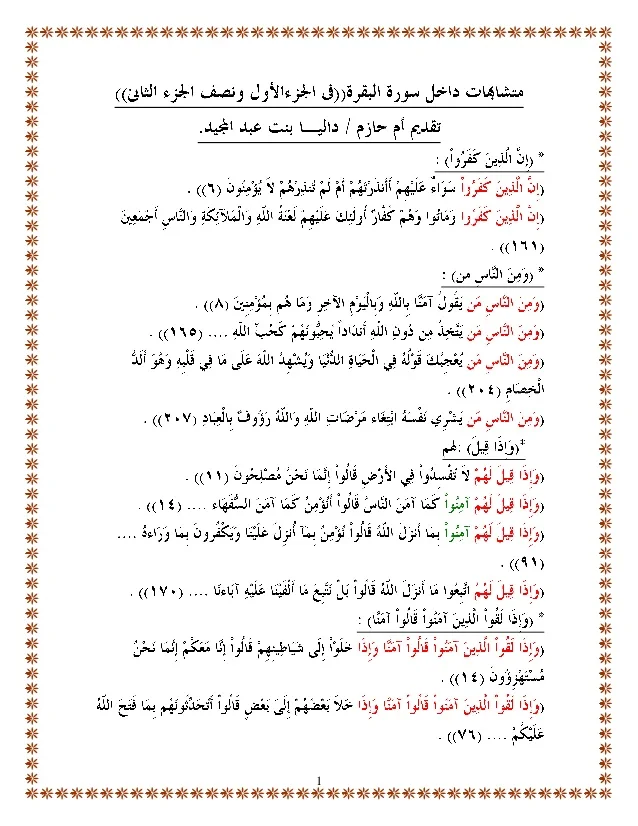 متشابهات داخل سورة البقرة((فى الجزءالأول ونصف الجزء الثانى))
تقديم أم حازم / داليــــا بنت عبد المجيد.
* (إِنَّ الَّذِينَ كَفَرُواْ) :
(إِنَّ الَّذِينَ كَفَرُواْ سَوَاءٌ عَلَيْهِمْ أَأَنذَرْتَهُمْ أَمْ لَمْ تُنذِرْهُمْ لاَ يُؤْمِنُونَ (٦)) .
(إِنَّ الَّذِينَ كَفَرُوا وَمَاتُوا وَهُمْ كُفَّارٌ أُولَئِكَ عَلَيْهِمْ لَعْنَةُ اللّهِ وَالْمَلآئِكَةِ وَالنَّاسِ أَجْمَعِينَ
(١٦١)) .
* (وَمِنَ النَّاسِ من) :
(وَمِنَ النَّاسِ مَن يَقُولُ آمَنَّا بِاللّهِ وَبِالْيَوْمِ الآخِرِ وَمَا هُم بِمُؤْمِنِينَ (٨)) .
(وَمِنَ النَّاسِ مَن يَتَّخِذُ مِن دُونِ اللّهِ أَندَاداً يُحِبُّونَهُمْ كَحُبِّ اللّهِ .... (١٦٥)) .
(وَمِنَ النَّاسِ مَن يُعْجِبُكَ قَوْلُهُ فِي الْحَيَاةِ الدُّنْيَا وَيُشْهِدُ اللّهَ عَلَى مَا فِي قَلْبِهِ وَهُوَ أَلَدُّ
الْخِصَامِ (٢٠٤)) .
(وَمِنَ النَّاسِ مَن يَشْرِي نَفْسَهُ ابْتِغَاء مَرْضَاتِ اللّهِ وَاللّهُ رَؤُوفٌ بِالْعِبَادِ (٢٠٧)) .
*(وَإِذَا قِيلَ) : لهم
(وَإِذَا قِيلَ لَهُمْ لاَ تُفْسِدُواْ فِي الأَرْضِ قَالُواْ إِنَّمَا نَحْنُ مُصْلِحُونَ (١١)) .
(وَإِذَا قِيلَ لَهُمْ آمِنُواْ كَمَا آمَنَ النَّاسُ قَالُواْ أَنُؤْمِنُ كَمَا آمَنَ السُّفَهَاء .... (١٤)) .
(وَإِذَا قِيلَ لَهُمْ آمِنُواْ بِمَا أَنزَلَ اللّهُ قَالُواْ نُؤْمِنُ بِمَآ أُنزِلَ عَلَيْنَا وَيَكْفُرونَ بِمَا وَرَاءهُ ....
(٩١)) .
(وَإِذَا قِيلَ لَهُمُ اتَّبِعُوا مَا أَنزَلَ اللّهُ قَالُواْ بَلْ نَتَّبِعُ مَا أَلْفَيْنَا عَلَيْهِ آبَاءنَا .... (١٧٠)) .
* (وَإِذَا لَقُواْ الَّذِينَ آمَنُواْ قَالُواْ آمَنَّا) :
(وَإِذَا لَقُواْ الَّذِينَ آمَنُواْ قَالُواْ آمَنَّا وَإِذَا خَلَوْاْ إِلَى شَيَاطِينِهِمْ قَالُواْ إِنَّا مَعَكُمْ إِنَّمَا نَحْنُ
مُسْتَهْزِؤُونَ (١٤)) .
(وَإِذَا لَقُواْ الَّذِينَ آمَنُواْ قَالُواْ آمَنَّا وَإِذَا خَلاَ بَعْضُهُمْ إِلَىَ بَعْضٍ قَالُواْ أَتُحَدِّثُونَهُم بِمَا فَتَحَ اللّهُ
عَلَيْكُمْ .... (٧٦)) .
1